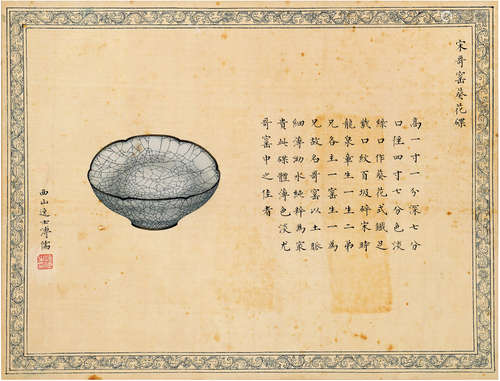 宋哥窰葵花碟
高一寸一分深七分
口徑四寸七分色淡
綠口作葵花式鐵足
截口紋百圾碎宋時
龍泉章生一生二弟
兄各主一窰生一為
兄故名哥窰以土脈
細薄油水純粹為
貴碟體薄色淡尤
哥窰中之佳者
西山逸士溥儒